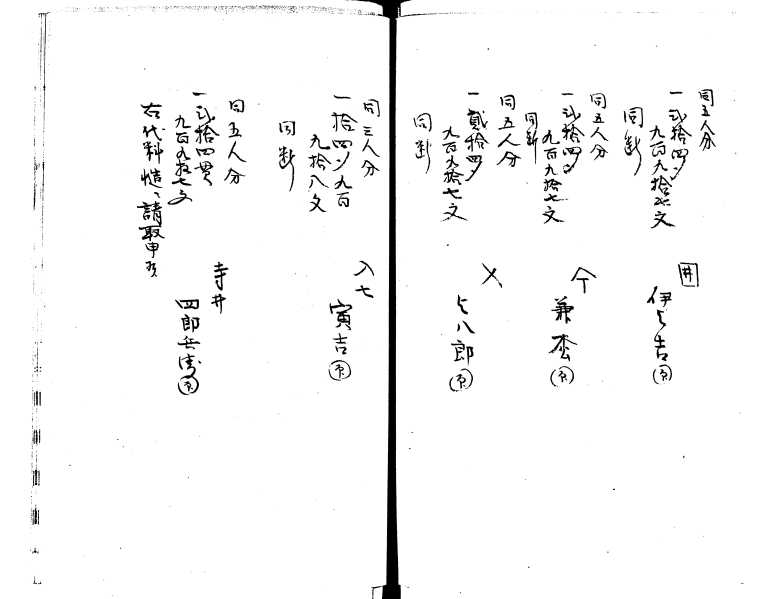 同五人分
一 弐拾四〆
九百九拾七文
同断
井
伊与吉 印
同五人分
一 弐拾四〆
九百九拾七文
同断
兼松 印
同五人分
一 貳拾四〆
九百九拾七文
同断
与八郎 印
同三人分
一 拾四〆九百
九拾八文
同断
入七
寅吉 印
同五人分
一 弐拾四貫
九百九拾七文
右代料慥ニ請取申候
寺井
四郎兵衛 印